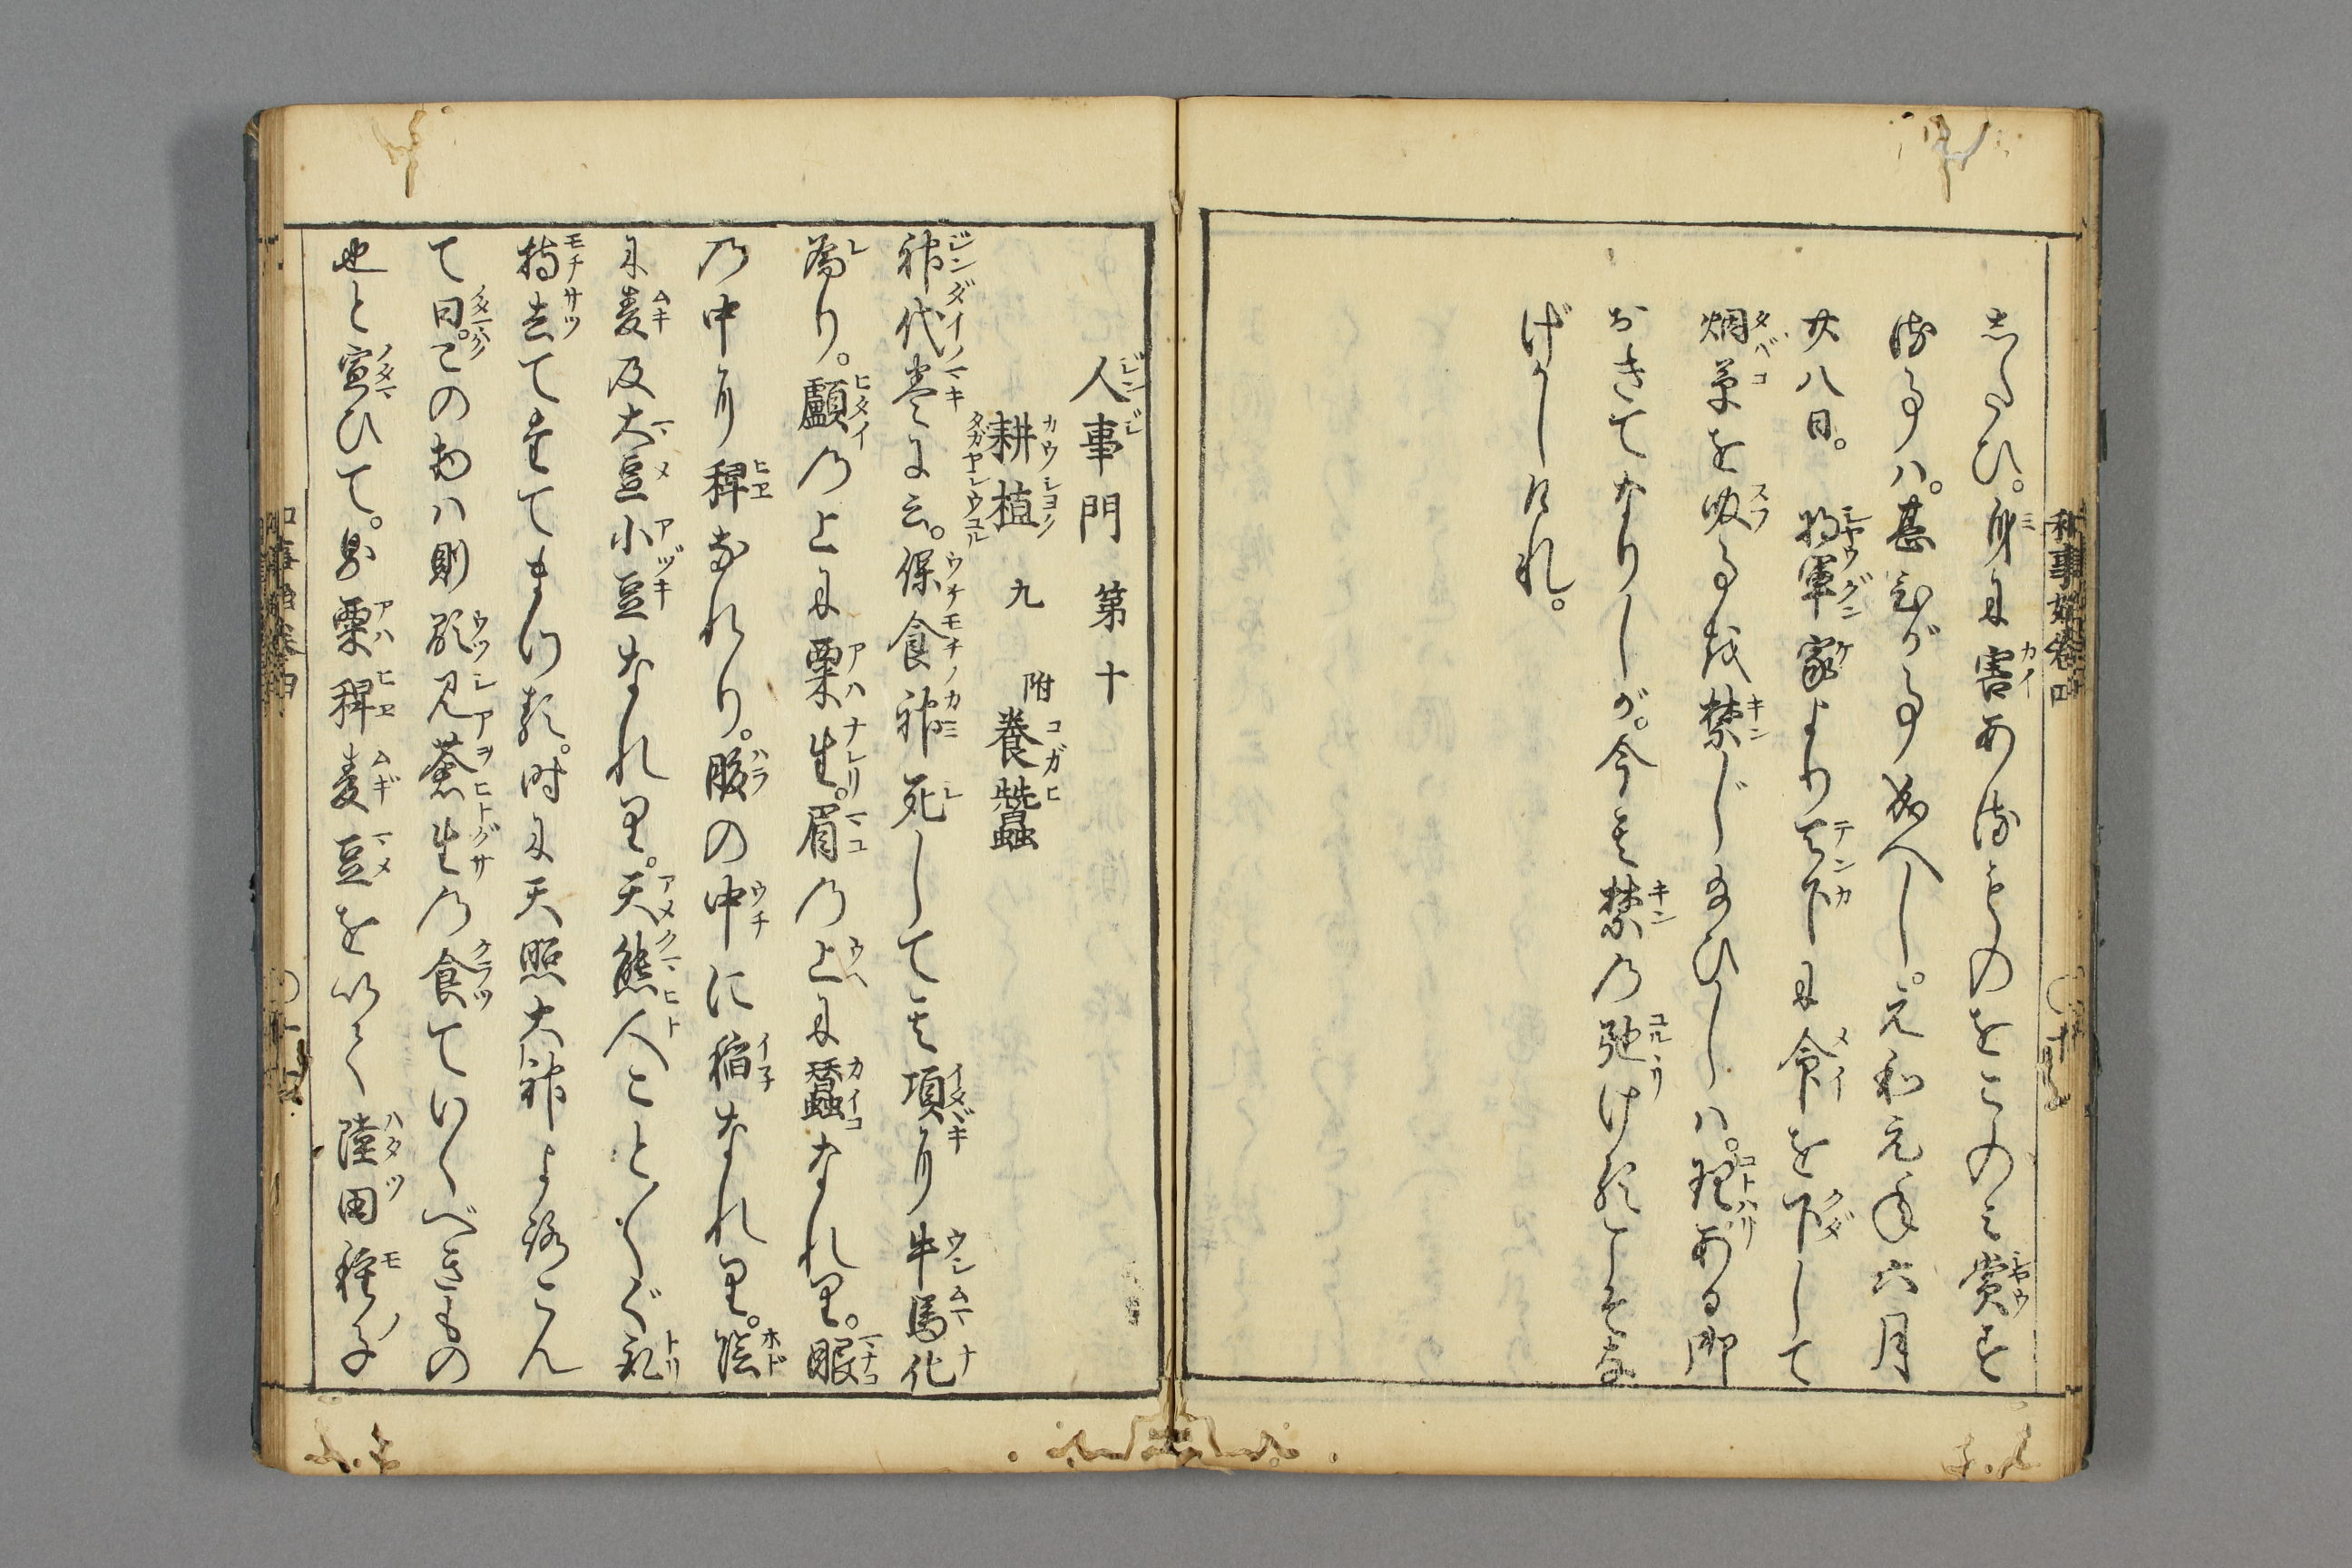 したひ。身に害あるものをこのみ賞す
る事ハ。甚ひが事なるへし。元和元年六月
廿八日。将軍家より天下に令を下して
烟草を吸る事を禁じ給ひしハ。理ある御
おきてなりしが。今其禁の弛けるこそな
げかしけれ。
人事門 第十
耕植 九 附養蠶
神代巻に云。保食神死して其項に牛馬化
為り。顱の上に粟生。眉の上に蚕なれり。眼
の中に稗なれり。腹の中に稲なれり。陰
に麦及大豆小豆なれり。天熊人ことごとく取
持去てたてまつる。時に天照大神よろこん
て曰。この物ハ則顕見蒼生の食ていくべきもの
也と宣ひて。則粟稗麦豆を以て陸田種子
和事始巻四